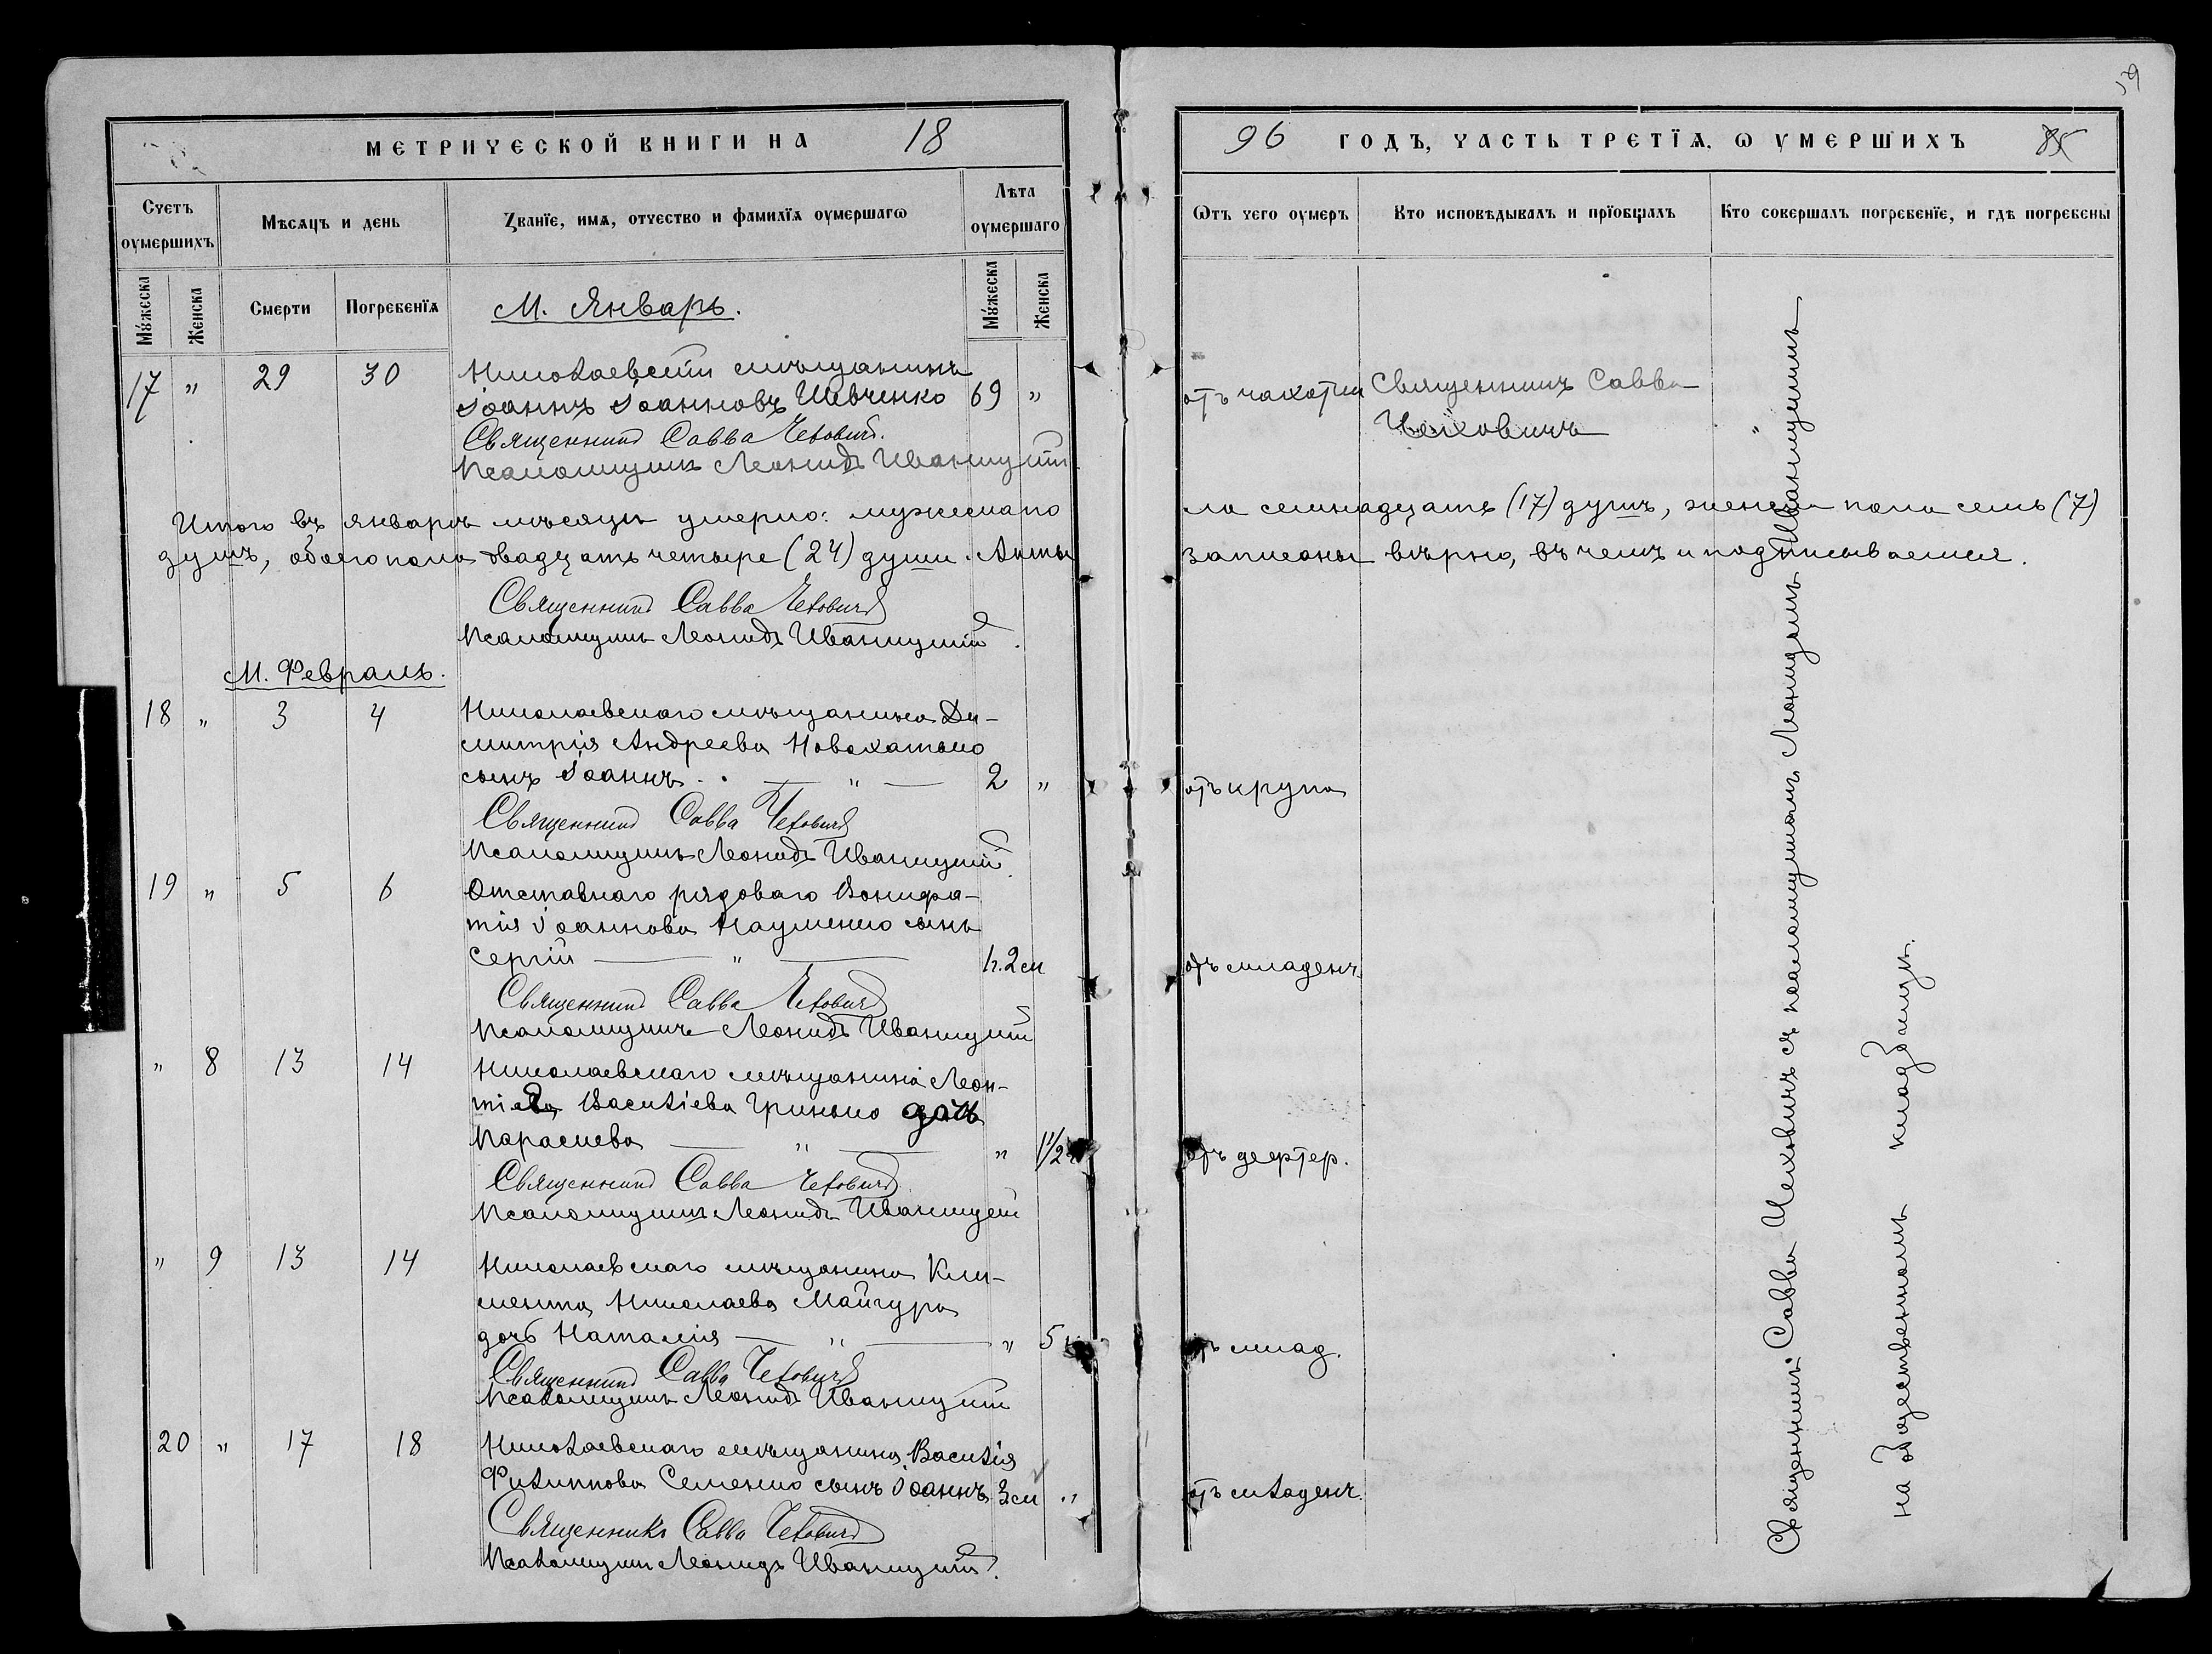 59
МЕТРИЧЕСКОЙ КНИГИ НА 18
96 ГОДЪ, ЧАСТЬ ТРЕТЇѦ, Ѡ УМЕРШИХЪ 85
Счетъ оумершихъ
Мѣсяцъ и день
Званїе, имѧ, отчество и фамилїѧ оумершагѡ
Лѣта оумершаго
Ѿтъ чего оумеръ
Кто исповѣдывалъ и прїобщалъ
Кто совершалъ погребенїе, и гдѣ погребены
Мꙋжеска
Женска
Смерти
Погребенїѧ
М. Январь.
Мꙋжеска
Женска
17 " 29 30 Николаевскій мѣщанинъ
Іоаннъ Іоанновъ Шевченко 69 " отъ чахотки Священникъ Савва
Священникъ Савва Чехович. Чехович "
Псаломщикъ Леонидъ Иваницкій
Итого въ январѣ мѣсяцѣ умерло: мужескаго
ла семнадцать (17) душъ, женска пола семь (7)
душъ, обоего пола двадцать четыре (24) души. Акты
записаны вѣрно, въ чемъ и подписываемся.
Священникъ Савва Чеховичъ
Псаломщикъ Леонидъ Иваницкій.
М. Февраль.
18 " 3 4 Николаевскаго мѣщанина Ди-
митрія Андреева Новохатько
сынъ Іоаннъ. . — " — 2 " отъ крупа
Священникъ Савва Чеховичъ
Псаломщикъ Леонидъ Иваницкій.
19 " 5 6 Отставнаго рядоваго Вонифа-
тія Іоаннова Науменко сынъ
Сергій — " — 2 м отъ младенч.
Священникъ Савва Чеховичъ
Псаломщикъ Леонидъ Иваницкій
" 8 13 14 Николаевскаго мѣщанина Леон-
тія Василіева Гринько дочь
Параскева — " — " 1½ отъ дефтер.
Священникъ Савва Чеховичъ
Псаломщикъ Леонидъ Иваницкій
" 9 13 14 Николаевскаго мѣщанина Кли-
мента Николаева Майгура
дочь Наталія — " — " 5 отъ млад.
Священникъ Савва Чеховичъ
Псаломщикъ Леонидъ Иваницкій
20 " 17 18 Николаевскаго мѣщанина Василія
Филиппова Семенко сынъ Іоаннъ 3 м " отъ младенч.
Священникъ Савва Чеховичъ
Псаломщикъ Леонидъ Иваницкій.
Священникъ Савва Чеховичъ съ псаломщикомъ Леонидомъ Иваницкимъ
на общественномъ кладбищѣ.